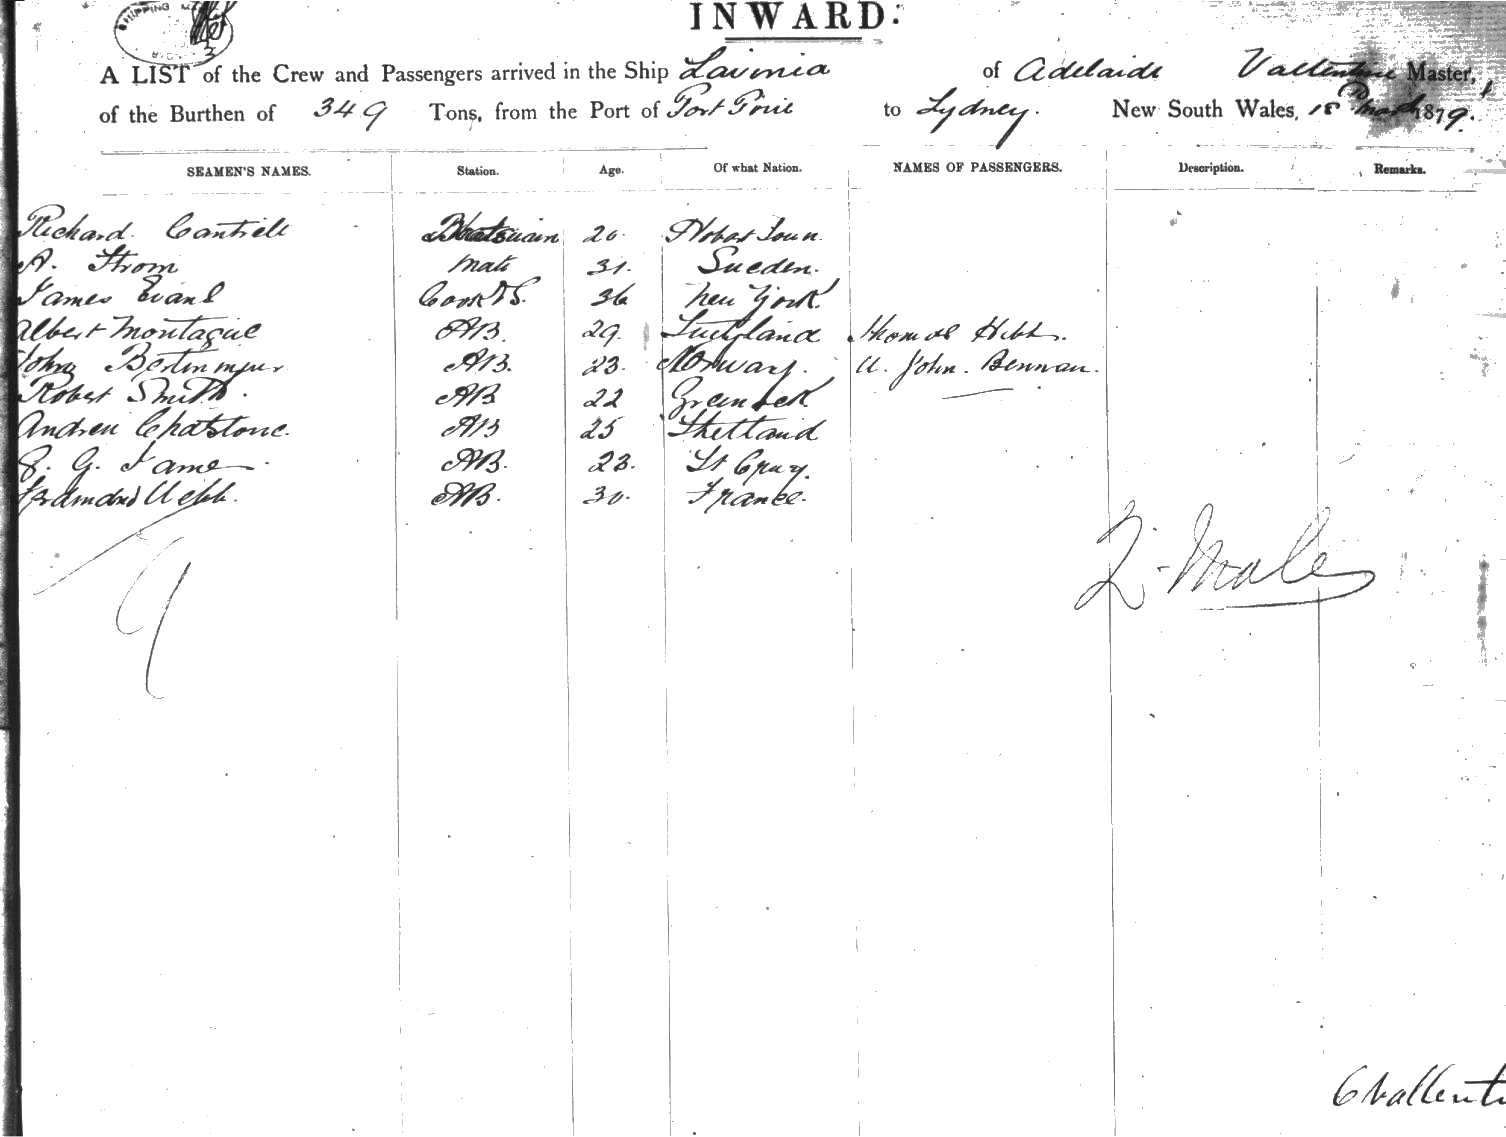 SHIPPING
INWARD.
A LIST of the Crew and Passengers arrived in the Ship Lavinia of Adelaide Vallentine Master,
of the Burthen of 349 Tons, from the Port of Port Pirie to Sydney. New South Wales, 18 March 1879.
SEAMEN'S NAMES. Station. Age. Of what Nation. NAMES OF PASSENGERS. Description. Remarks.
Richard Cantrell Boatswain 20. Hobart Town.
A. Strom Mate 31. Sweden.
James Evans Cook & S. 36 New York.
Albert Montague AB. 29. Thomas Hibbs.
John AB. 23. Norway. John.
Robert Smith. AB 22 Greenock
Andrew Chatstone. AB 25 Shetland
G. James AB. 23. St
Webb. AB. 30. France.
9
2. Males